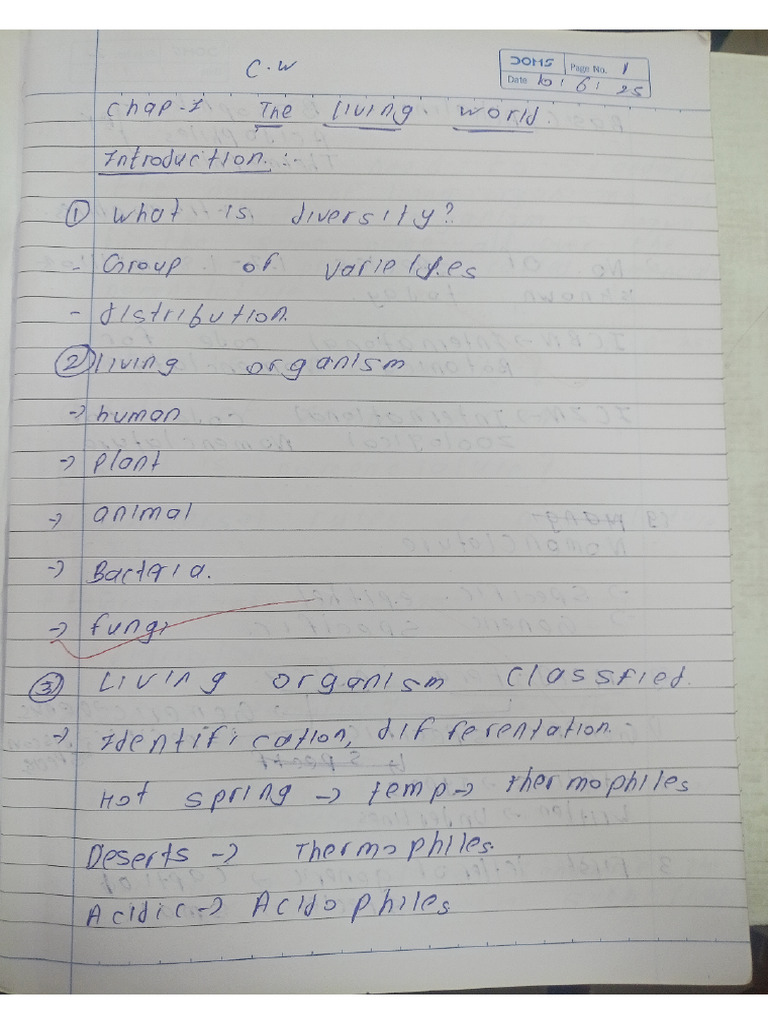 C.W
DOMS Page No. 1
Date 6 6 25
Chap-1 The Living World.
Introduction :-
① What is diversity?
- Group of varietyes
- distribution.
② living organism
→ human
→ plant
→ animal
→ Bacteria.
→ fungi
③ Living organism classfied.
→ Identification, differentation.
Hot spring → temp → thermophiles
Deserts → Thermophiles.
Acidic → Acidophiles